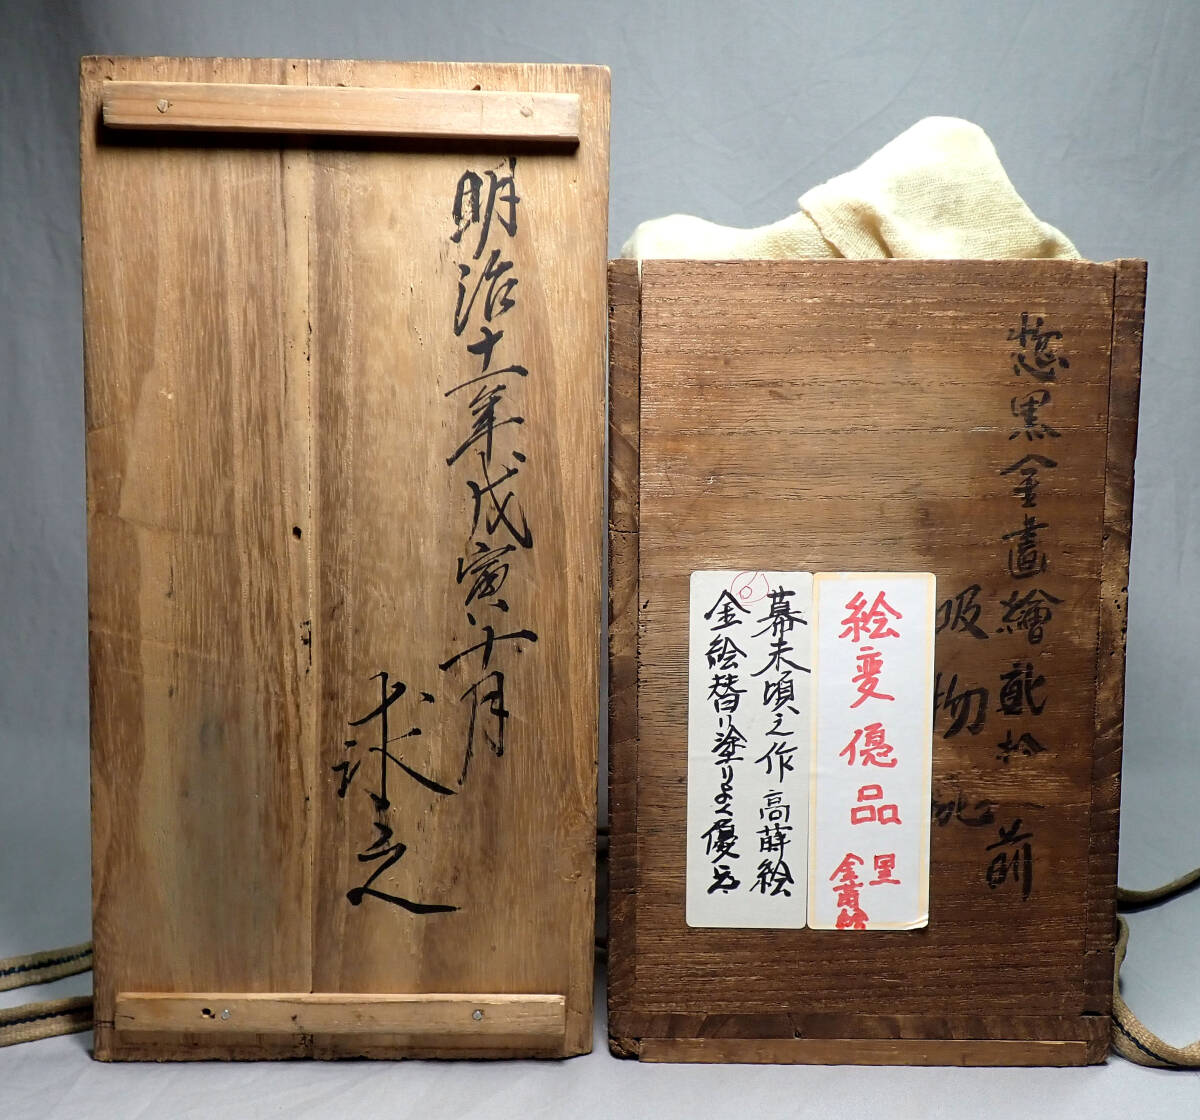 明治十一年戊寅十月
求之
惣黒金畫繪弐拾人前
吸物椀
絵変優品
黒
金蒔絵
6
幕末頃之作高蒔絵
金絵替り塗りよく優品